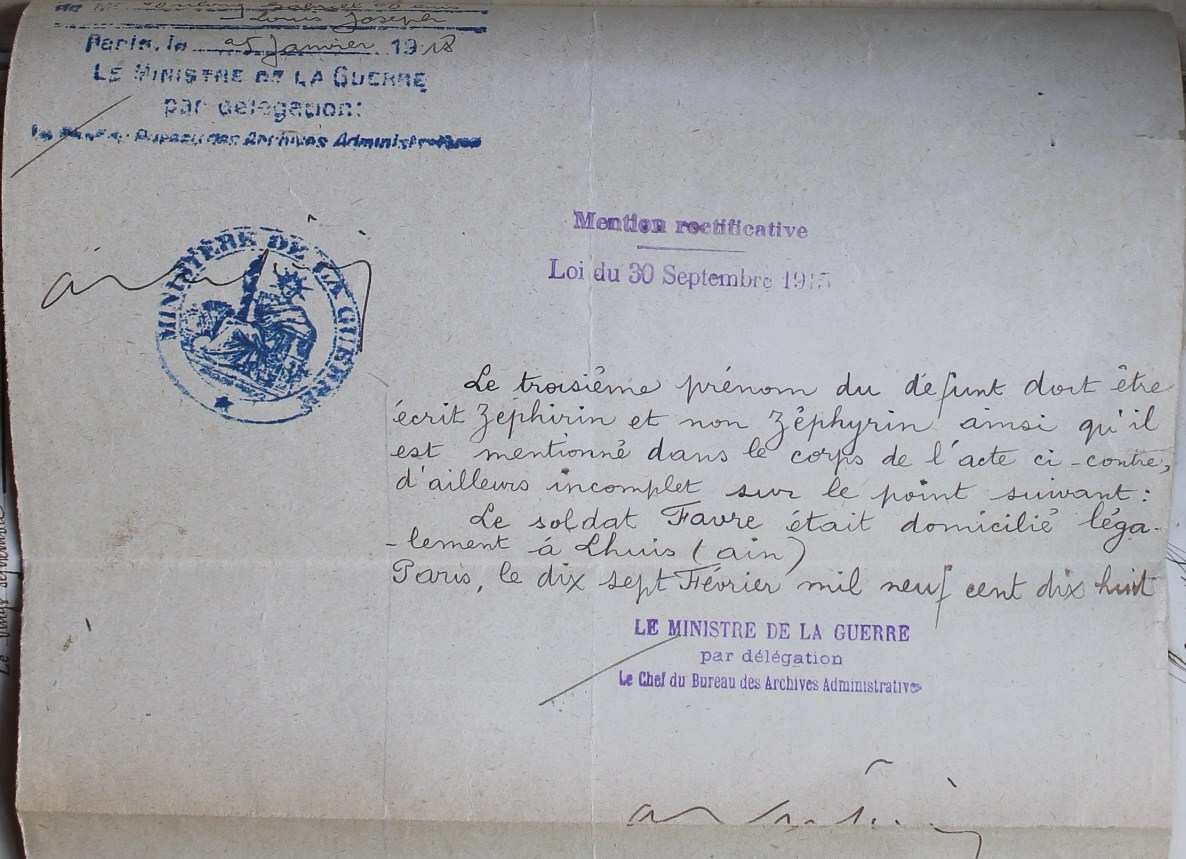 Louis Joseph
Paris, le 25 Janvier 1918
LE MINISTRE DE LA GUERRE
par délégation:
Bureau des Archives Administratives
MINISTÈRE DE LA GUERRE
Mention rectificative
Loi du 30 Septembre 1915
Le troisième prénom du défunt doit être
écrit Zéphirin et non Zéphyrin ainsi qu'il
est mentionné dans le corps de l'acte ci-contre,
d'ailleurs incomplet sur le point suivant:
Le soldat Favre était domicilié léga-
-lement à Lhuis (ain)
Paris, le dix sept Février mil neuf cent dix huit
LE MINISTRE DE LA GUERRE
par délégation
Le Chef du Bureau des Archives Administratives